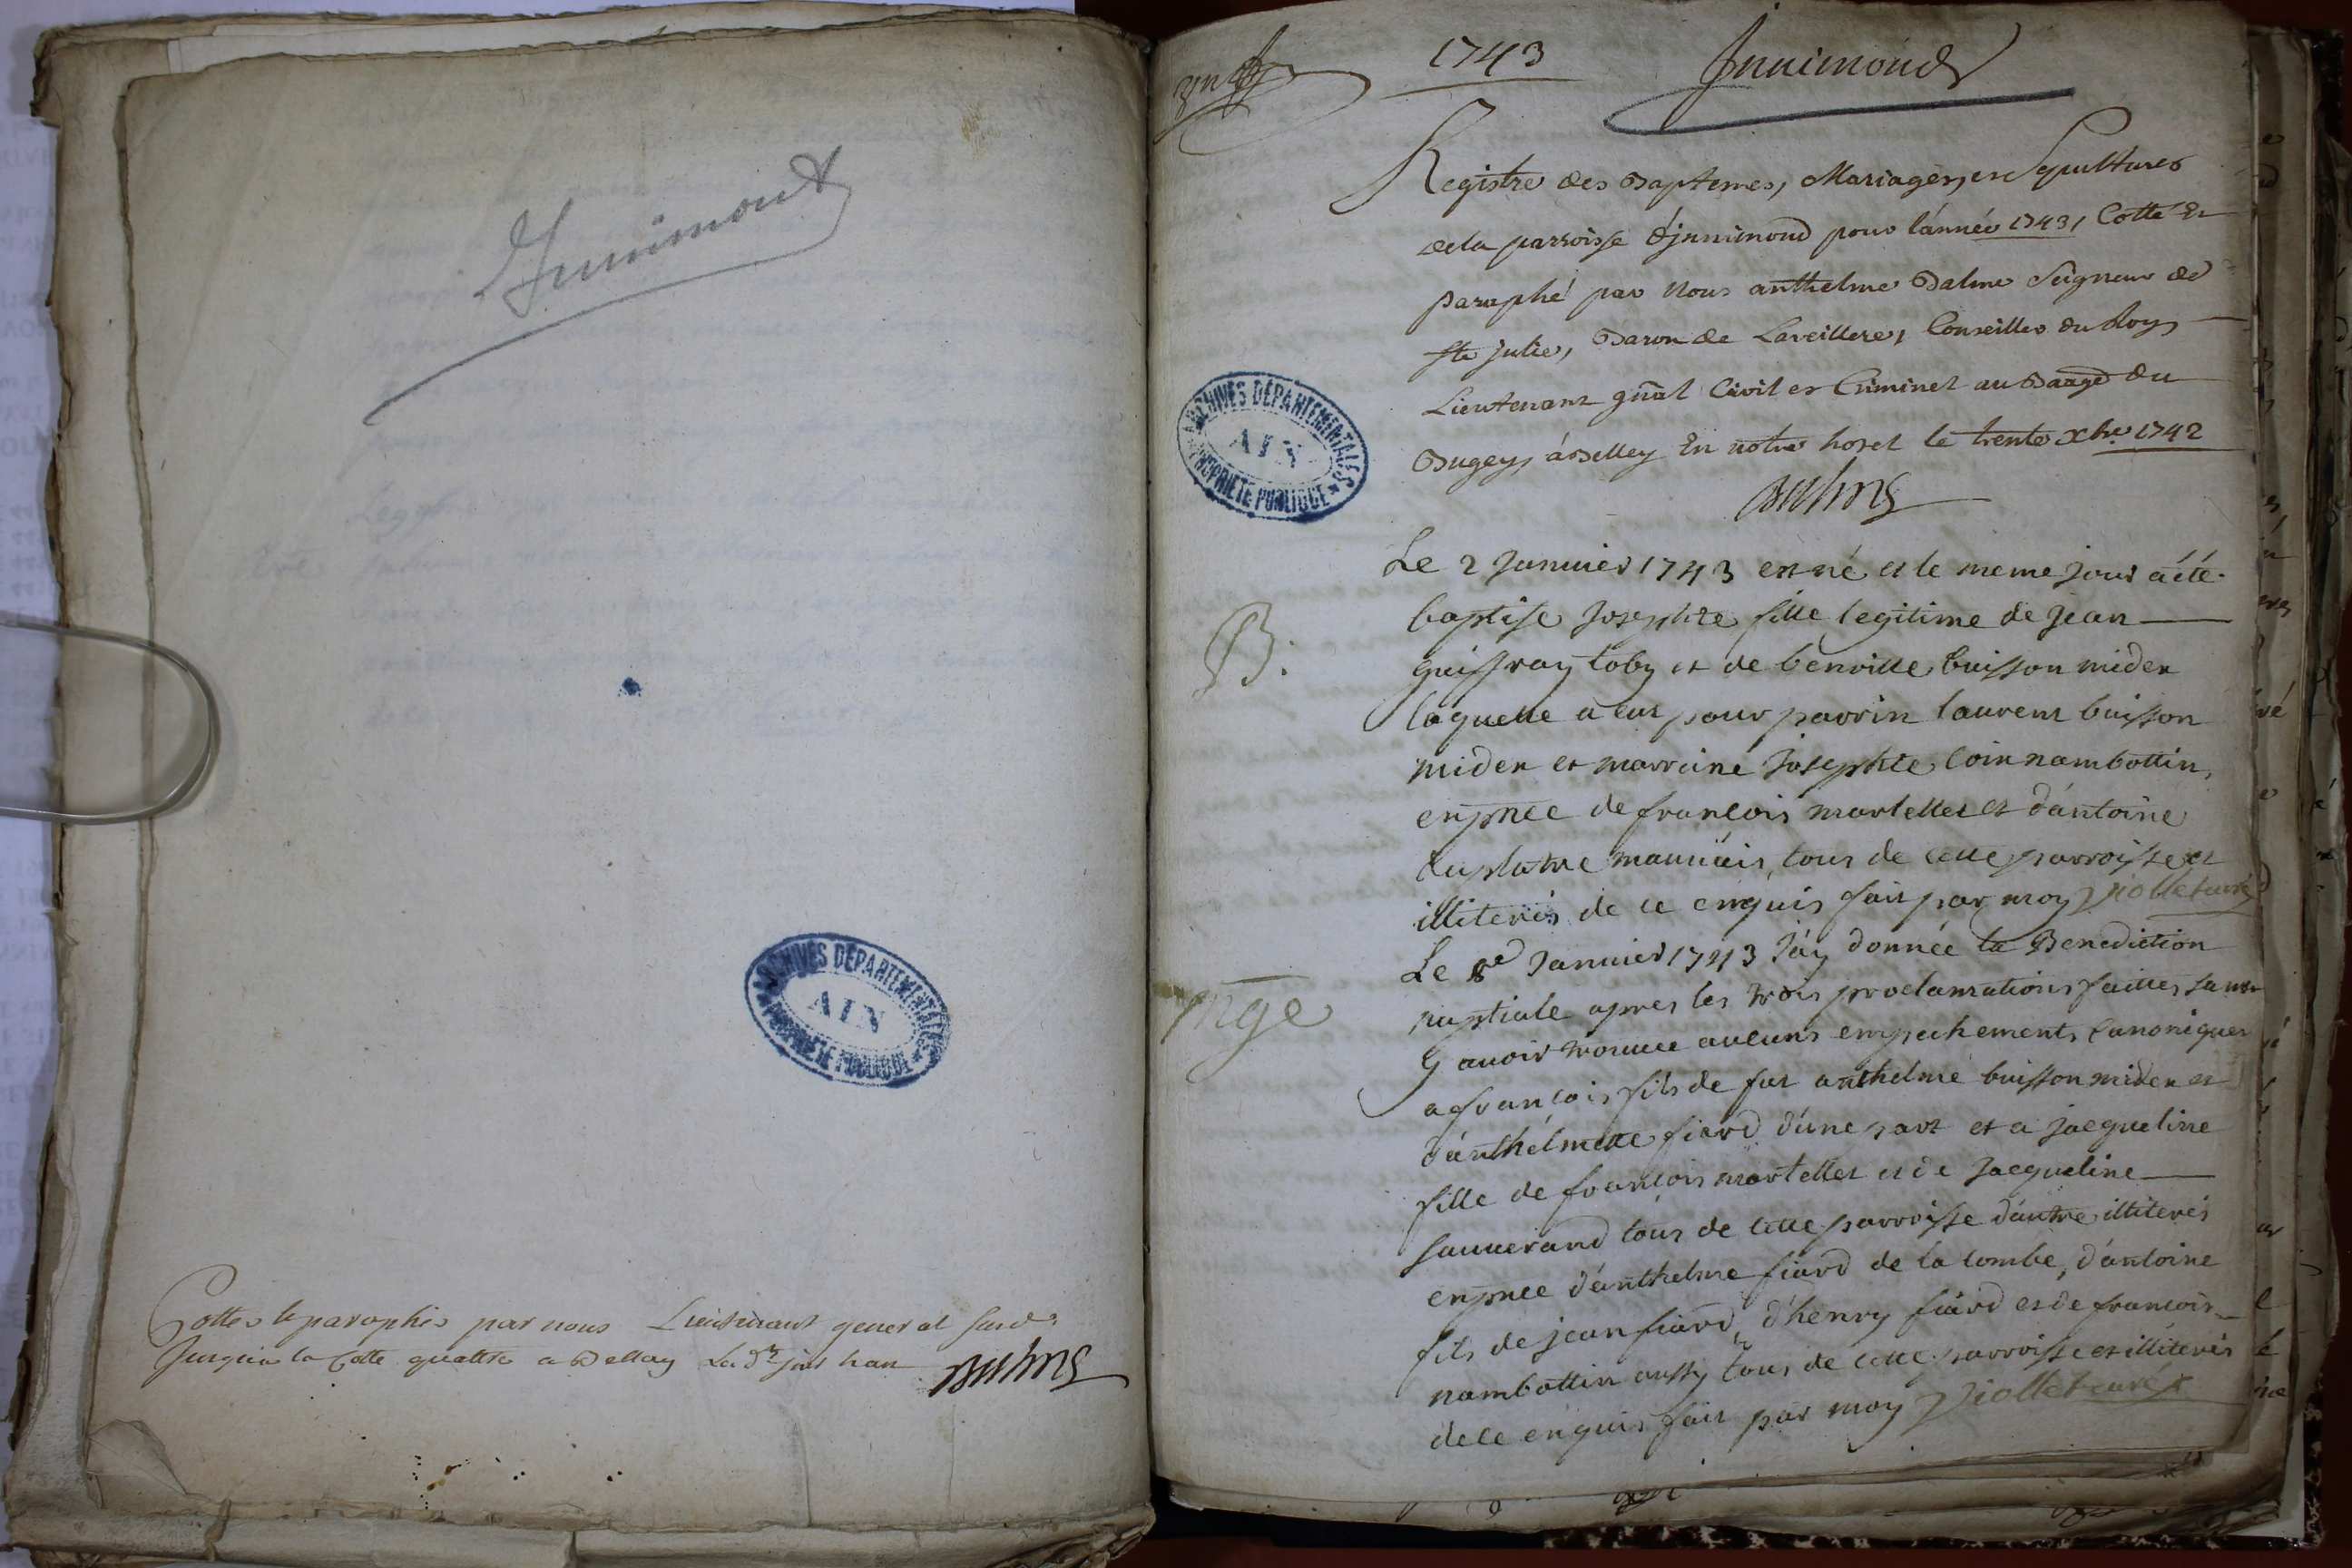 Innimond
Cottes et paraphés par nous Lieutenant general susd.
Jusqu'a la Cotte quattre a Belley
ARCHIVES DEPARTEMENTALES
AIN
PROPRIETE PUBLIQUE
1743
Innimond
Registre des Baptemes, Mariages, et Sepultures
de la parroisse d'jnnimond pour l'année 1743, Cotté Et
Paraphé par Nous anthelme Balme Seigneur de
Ste Julie, Baron de Lareillere, Conseiller du Roy
Lieutenant gñal Civil et Criminel au Baage du
Bugey, à Belley En notre hotel le trente xbre 1742
Balme
ARCHIVES DEPARTEMENTALES
AIN
PROPRIETE PUBLIQUE
B.
Le 2 Januier 1743 est né et le meme jour a été
baptise Josephte fille legitime de Jean
guiffray toby et de benoitte buisson miden
laquelle a eut pour parrin laurent buisson
miden et marraine Josephte Coin nambottin,
en pnce de françois martellet et d'antoine
duplatre mauuais, tous de cette parroisse et
illiterés de ce enquis fait par moy Viollet curé
mge
Le 8e Januier 1743 J'ay donnée la Benediction
nuptiale apres les trois proclamations faittes sans
y auoir trouuée aucuns empechements canoniques
a françois fils de fut anthelme buisson miden et
d'anthelmette fiard d'une part et a jacqueline
fille de françois martellet et de Jacqueline
sauuerand tous de cette parroisse d'autre illiterés
en pnce d'anthelme fiard de la combe, d'antoine
fils de jean fiard, d'henry fiard et de françois
nambottin aussy tous de cette parroisse et illiterés
de ce enquis fait par moy Viollet curé